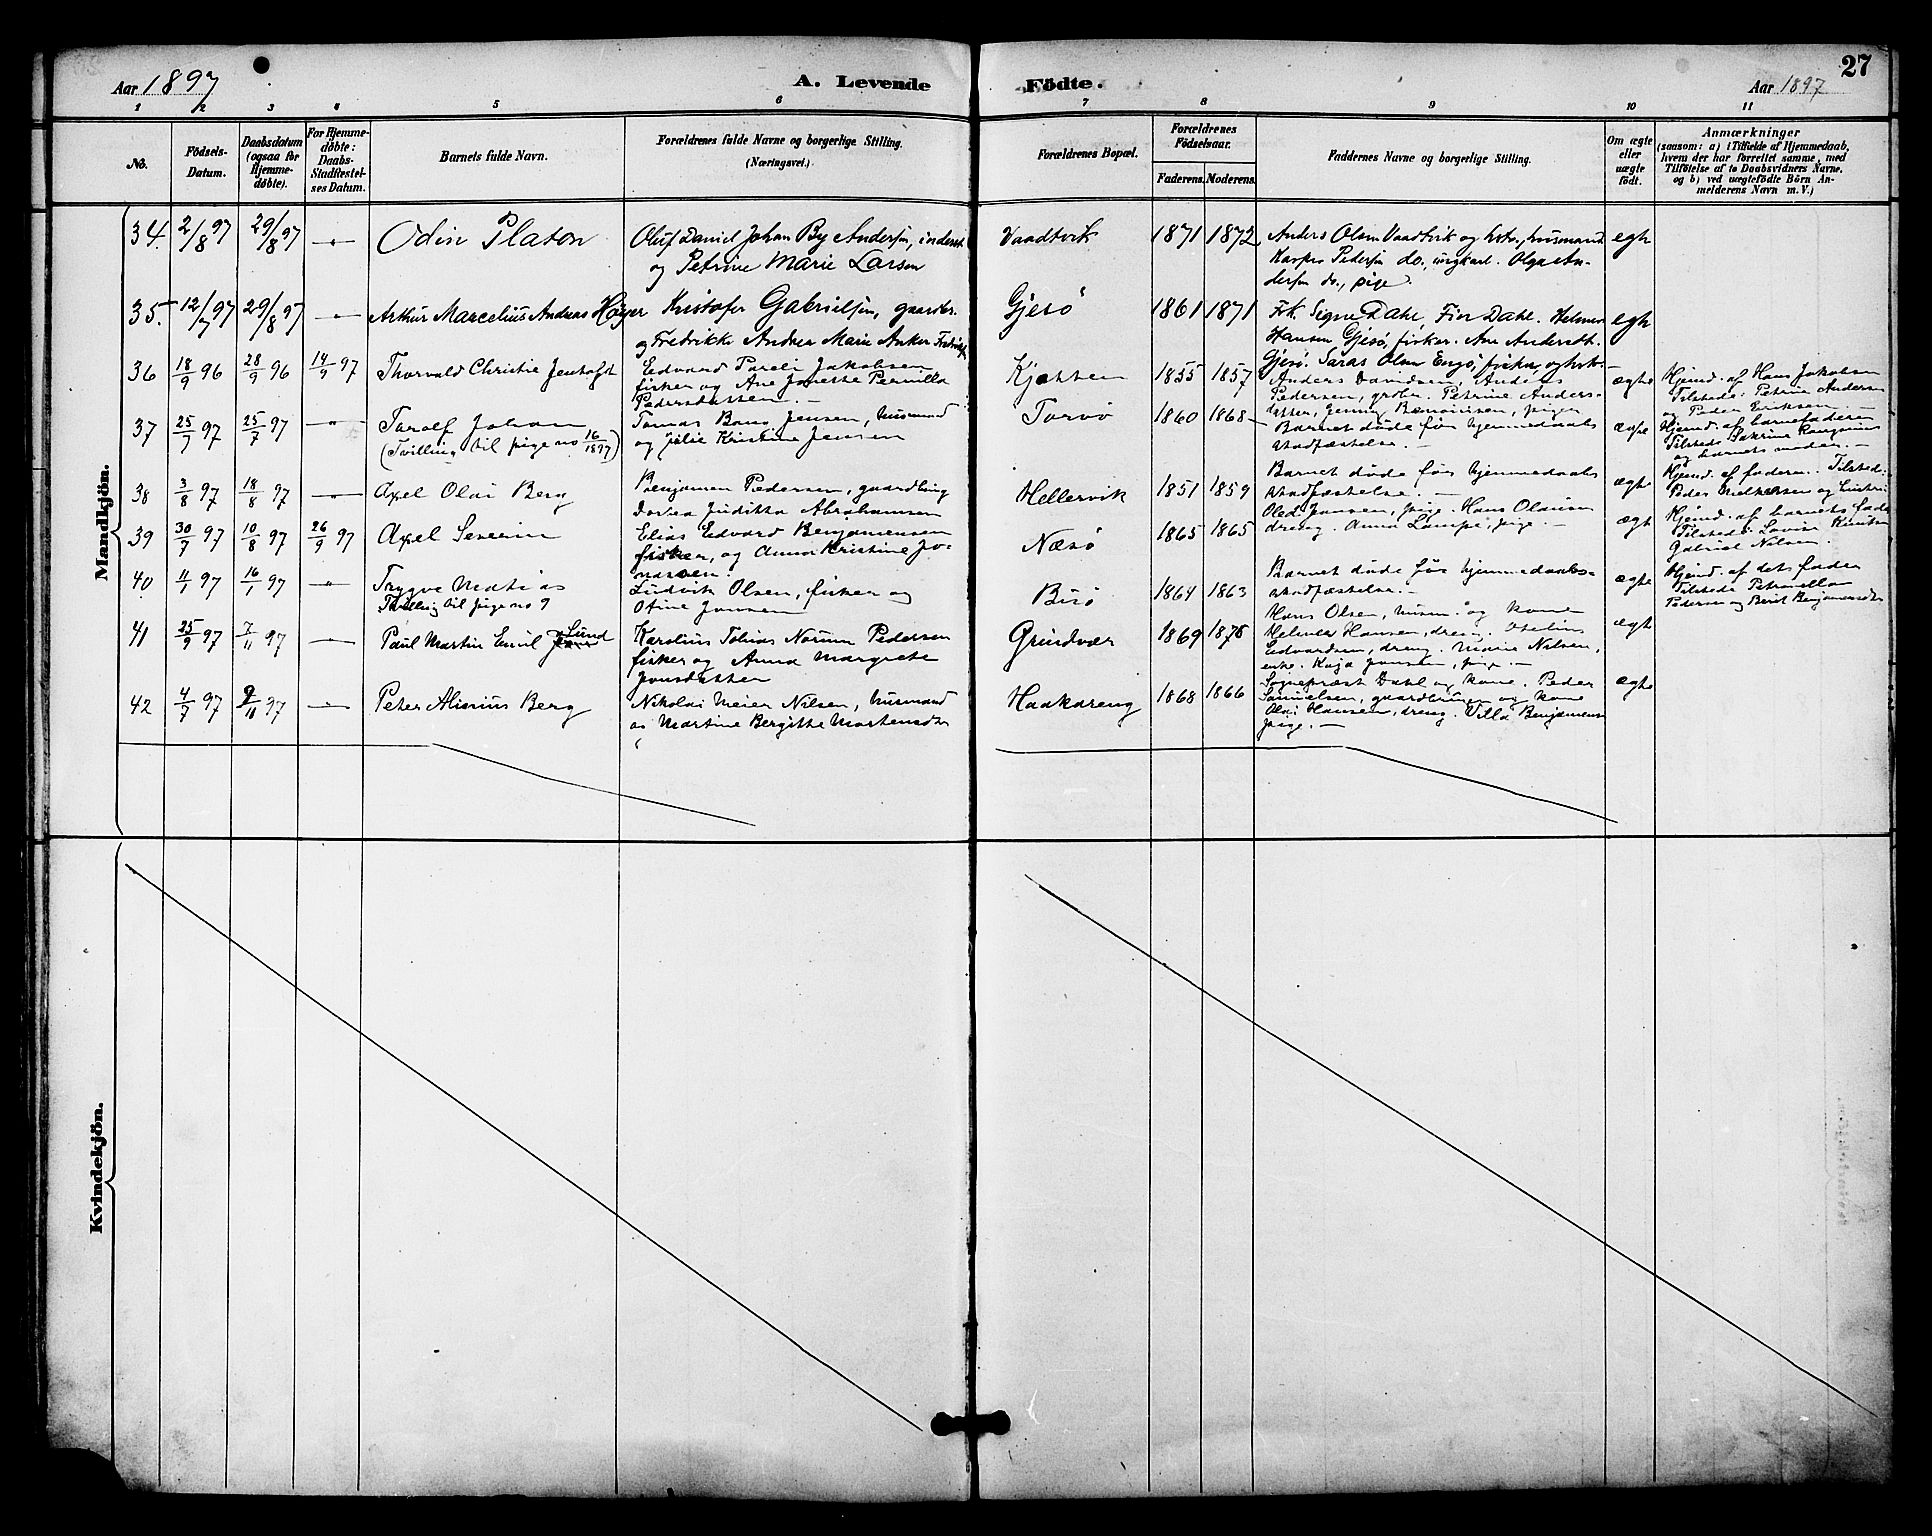 27
Aar 1897
A. Levende Fødte.
Aar 1897
1 2 3 4 5 6 7 8 9 10 11
No.
Fødsels-
Datum.
Daabsdatum
(ogsaa for
Hjemme-
døbte).
For Hjemme-
døbte:
Daabs-
Stadfæstel-
ses Datum.
Barnets fulde Navn.
Forældrenes fulde Navne og borgerlige Stilling.
(Næringsvei.)
Forældrenes Bopæl.
Forældrenes
Fødselsaar.
Faderens. Moderens.
Faddernes Navne og borgerlige Stilling.
Om ægte
eller
uægte
født.
Anmærkninger
(saasom: a) i Tilfælde af Hjemmedaab,
hvem der har forrettet samme, med
Tilføielse af to Daabsvidners Navne,
og b) ved uægtefødte Børn An-
melderens Navn m. V.)
Mandkjön.
34. 2/8 97 29/8 97 — Odin Platon
Oluf Daniel Johan By Andersen, inderst
og Petrine Marie Larsen
Vaadtvik 1871 1872
Anders Olsen Vaadtvik og kone, husmand.
Kasper Pedersen do., ungkarl. Olga An-
dersen do., pige.
egte
35. 12/7 97 29/8 97 — Arthur Marcelius Andreas Høyer
Kristofer Gabrielsen, gaardbr.
og Fredrikke Andrea Marie Anker
Gjesø 1861 1871
Frk. Signe Dahl, Fin Dahl. Helmer
Hansen Gjesø, fisker. Ane Andersdt.
Gjesø. Saras Olsen Engø, fisker, og
egte
36 18/9 96 28/9 96 14/9 97 Thorvald Christie Jentoft
Edvard Pareli Jakobsen
fisker og Ane Jonette Pernilla
Pedersdatter. —
Kjøtten 1855 1857
Anders Davidsen, Anders
Pedersen, . Petrine Anders-
datter, Jenny , piger
ægte
Hjemd. af Hans Jakobsen
Tilstede: Petrine Andersen
og Peder Eriksen —
37 25/7 97 25/7 97 — Taralf Johan
(Tvilling til pige no 16/1897)
Tomas Bons Jensen, husmand
og Julie Kristine Jensen
Torvø 1860 1868
Barnet døde før hjemmedaabs
stadfæstelse. —
ægte
Hjemd. af barnefaderen
Tilstede
og barnets moder. —
38 3/8 97 18/8 97 — Axel Olai Berg
Benjamen Pedersen, gaardbrug
Dorlea Juditta Abrahamsen
Hellervik 1851 1859
Barnet døde før hjemmedaabs
stadfæstelse. —
ægte
Hjemd. af faderen. Tilsted.
Peder Melkersen og
39 30/7 97 10/8 97 26/9 97 Axel Severin
Elias Edvard Benjamensen
fisker, og Anna Kristine Jo-
nassen.
Næsø 1865 1865
Oled. Jansen, pige. Hans Olausen
dreng. Anna Lampe, pige. —
ægt
Hjemd. af barnets fader
Tilstede: Lovise Knutsen
Gabriel Nilsen.
40 11/1 97 16/1 97 — Trygve Matias
Tvilling til pige no 9
Ludvik Olsen, fisker og
Otine Jansen
Busø 1864 1863
Barnet døde før hjemmedaabs-
stadfæstelse. —
ægte
Hjemd. af dets fader
Tilstede Petronella
Pedersen og Berit Benjamensdtr
41 25/9 97 7/11 97 — Paul Martin Emil Lund
Karolius Tobias Norum Pedersen
fisker og Anna Margrete
Jonsdatter
Grundvær 1869 1875
Hans Olsen, husm. og kone
Helmer Hansen, dreng. Otelius
Edvardsen, dreng. Marie Nilsen,
enke. Kaja Jensen, pige. —
ægt
42 4/7 97 9/11 97 — Peter Alinius Berg
Nikolai Meier Nilsen, husmand
og Martine Bergitte Mortensdtr
Haakareng 1868 1866
Sognepræst Dahl og kone. Peder
Samuelsen, gaardbruger og kone
Olai Hansen, dreng. Villa Benjamensen
pige. —
ægte
Kvindekjön.